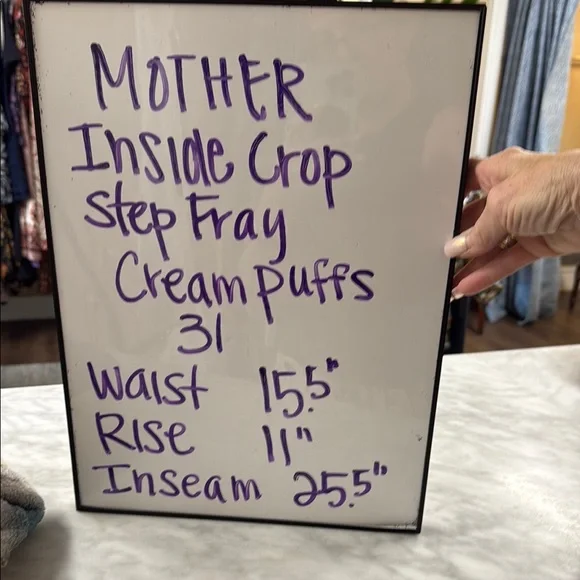 MOTHER
Inside Crop
Step Fray
Cream Puffs
31
Waist 15.5"
Rise 11"
Inseam 25.5"